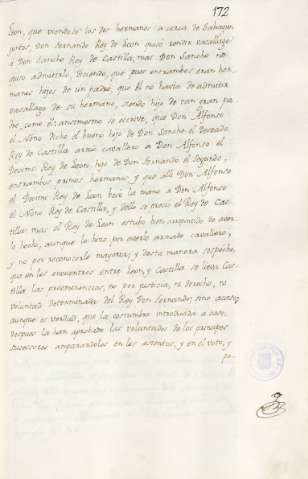 172
Leon, que viendose los dos hermanos a cerca de Sahagun
juntos, Don Fernando Rey de Leon quiso rendir vasallage
a Don Sancho Rey de Castilla, mas Don Sancho no
quiso admitirlo, deciendo, que pues entrambos eran her-
manos hijos de un padre, que el no havia de admitir
vasallage de su hermano, siendo hijo de tan gran pa-
dre, como el: assimismo se escrive, que Don Alfonso
el Nono dicho el bueno hijo de Don Sancho el Deseado
Rey de Castilla armó cavallero a Don Alfonso el
Decimo Rey de Leon hijo de Don Fernando el Segundo,
entrambos primos hermanos, y que alli Don Alfonso
el Decimo Rey de Leon besó la mano a Don Alfonso
el Nono Rey de Castilla, y dello se precio el Rey de Cas-
tilla: mas el Rey de Leon estubo bien arrepentido de aver-
lo hecho, aunque lo hizo por averlo armado cavallero,
y no por reconocerle mayoria; y desta manera sospecho,
que en los encuentros entre Leon, y Castilla se lleva Cas-
tilla las preeminencias, no por justicia, ni derecho, ni
voluntad determinada del Rey Don Fernando; sino acaso,
aunque es verdad, que la costumbre introducida a caso,
despues la han aprobado las voluntades de los principes
sucesores amparandolos en los asientos, y en el voto, y
pa-